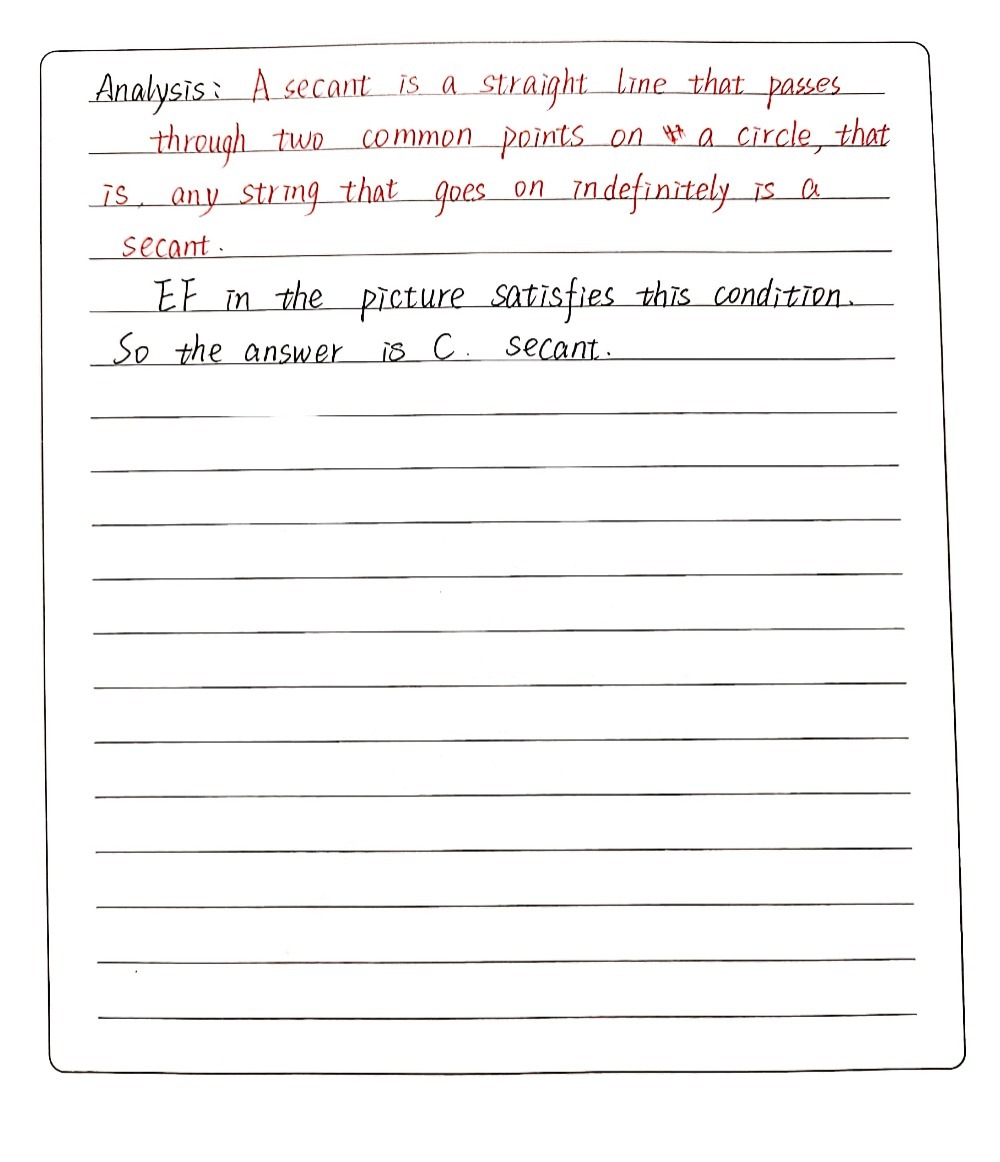 Analysis: A secant is a straight line that passes
through two common points on a circle, that
is, any string that goes on indefinitely is a
secant.
EF in the picture satisfies this condition.
So the answer is C. secant.